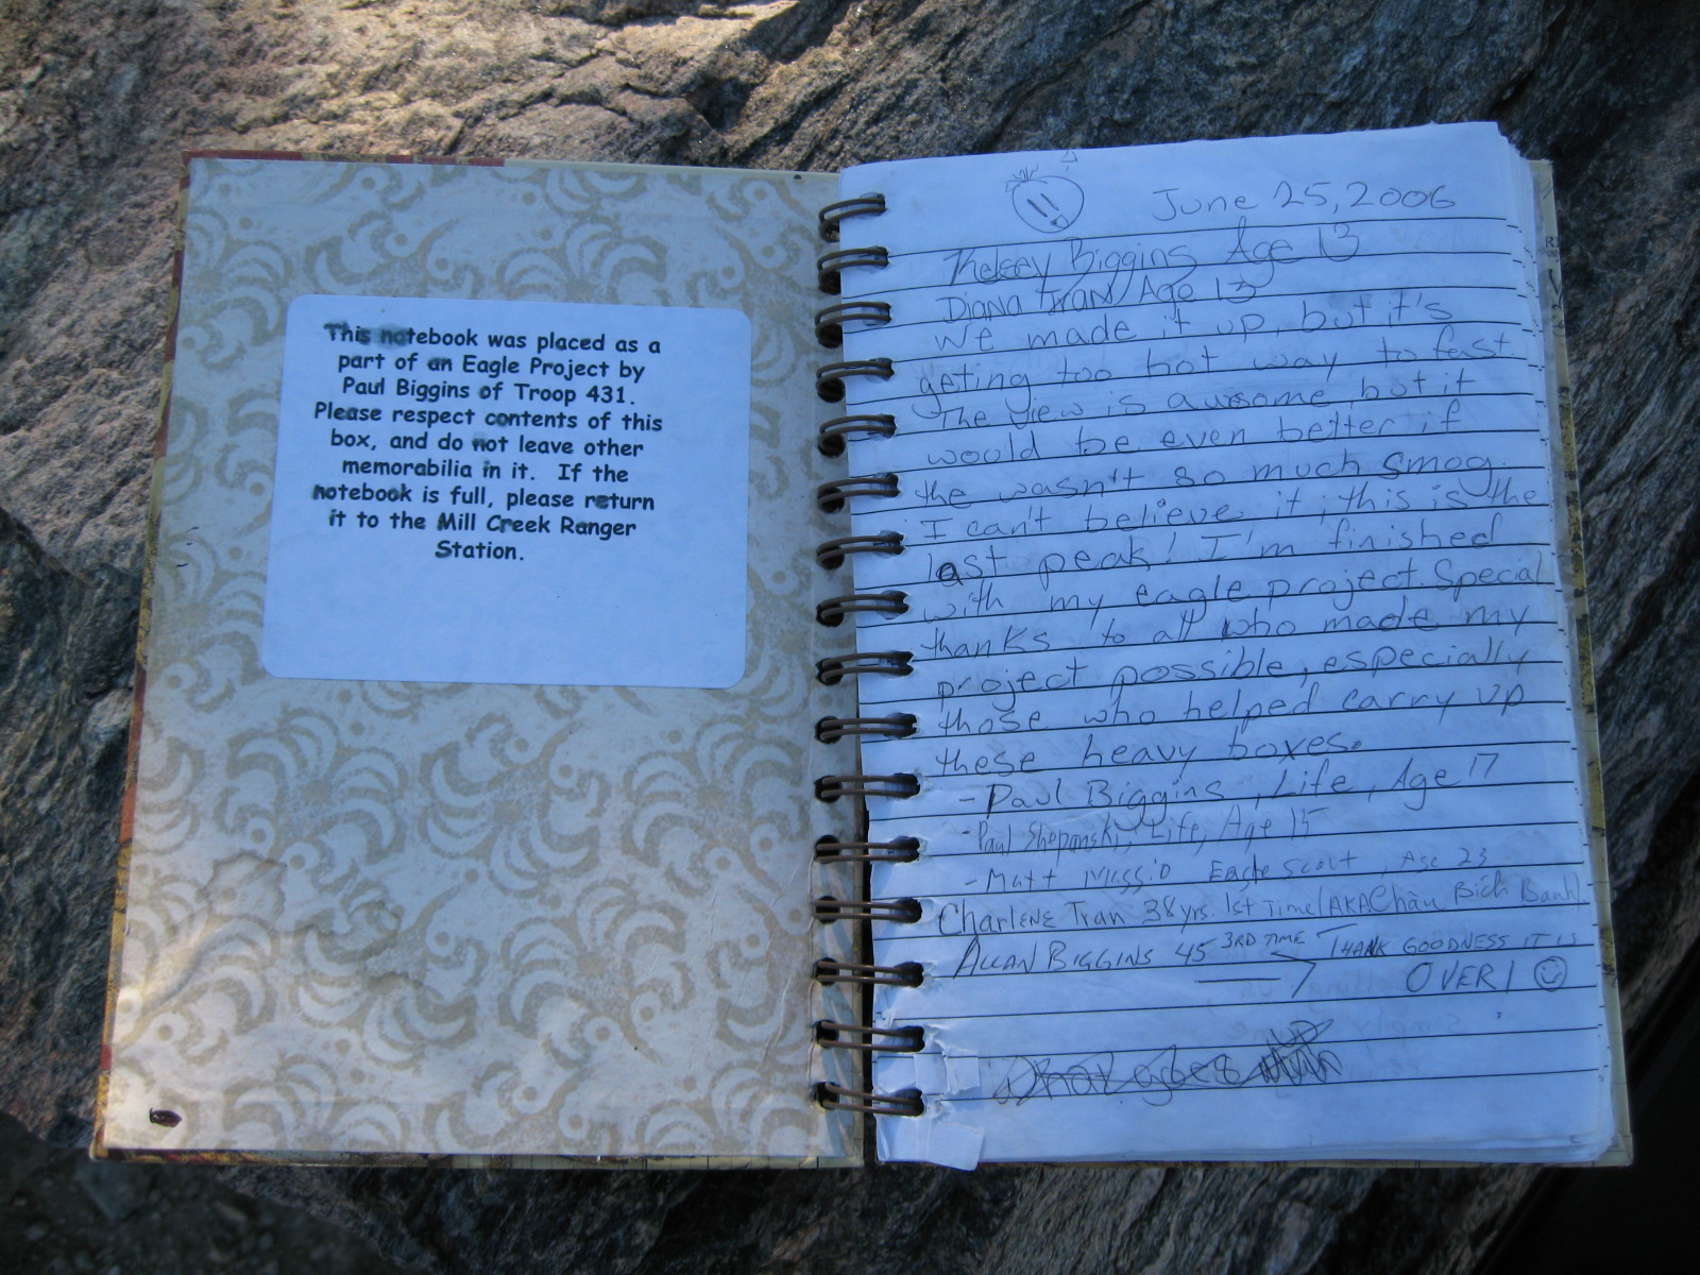 This notebook was placed as a
part of an Eagle Project by
Paul Biggins of Troop 431.
Please respect contents of this
box, and do not leave other
memorabilia in it. If the
notebook is full, please return
it to the Mill Creek Ranger
Station.
June 25, 2006
Kelsey Biggins Age 13
Diana Tran Age 13
We made it up, but it's
geting too hot way to fast
The view is awsome, but it
would be even better if
the wasn't so much smog.
I can't believe it, this is the
last peak! I'm finished
with my eagle project. Special
thanks to all who made my
project possible, especially
those who helped carry up
these heavy boxes.
- Paul Biggins, Life, Age 17
- Paul Life, Age 15
- Matt Eagle Scout, Age 23
Charlene Tran 38 yrs. 1st Time (AKA Chàu Bích Banh)
ALLAN BIGGINS 45 3RD TIME THANK GOODNESS IT IS
OVER!